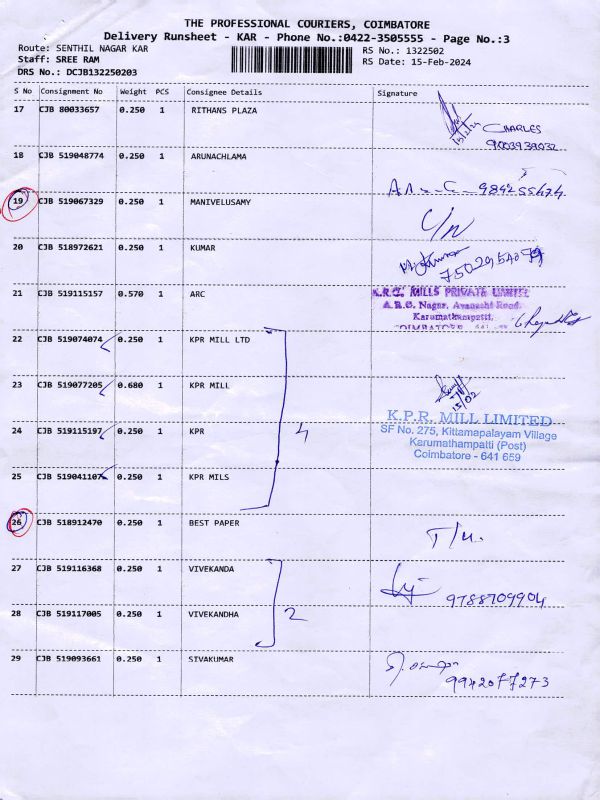 THE PROFESSIONAL COURIERS, COIMBATORE
Delivery Runsheet - KAR - Phone No.:0422-3505555 - Page No.:3
Route: SENTHIL NAGAR KAR RS No.: 1322502
Staff: SREE RAM RS Date: 15-Feb-2024
DRS No.: DCJB132250203
S No Consignment No Weight PCS Consignee Details Signature
17 CJB 80033657 0.250 1 RITHANS PLAZA
15/2/24 CHARLES
9003939032
18 CJB 519048774 0.250 1 ARUNACHLAMA
19 CJB 519067329 0.250 1 MANIVELUSAMY
C/N
20 CJB 518972621 0.250 1 KUMAR
21 CJB 519115157 0.570 1 ARC
MILLS PRIVATE LIMITED
Nagar, Avanashi Road,
Karumathampatti,
COIMBATORE 641
22 CJB 519074074 0.250 1 KPR MILL LTD
23 CJB 519077205 0.680 1 KPR MILL
15/02
K.P.R. MILL LIMITED
24 CJB 519115197 0.250 1 KPR 4
SF No. 275, Kittampalayam Village
Karumathampatti (Post)
Coimbatore - 641 659
25 CJB 519041107 0.250 1 KPR MILS
26 CJB 518912470 0.250 1 BEST PAPER
27 CJB 519116368 0.250 1 VIVEKANDA
9788709904
28 CJB 519117005 0.250 1 VIVEKANDHA 2
29 CJB 519093661 0.250 1 SIVAKUMAR
9942077273